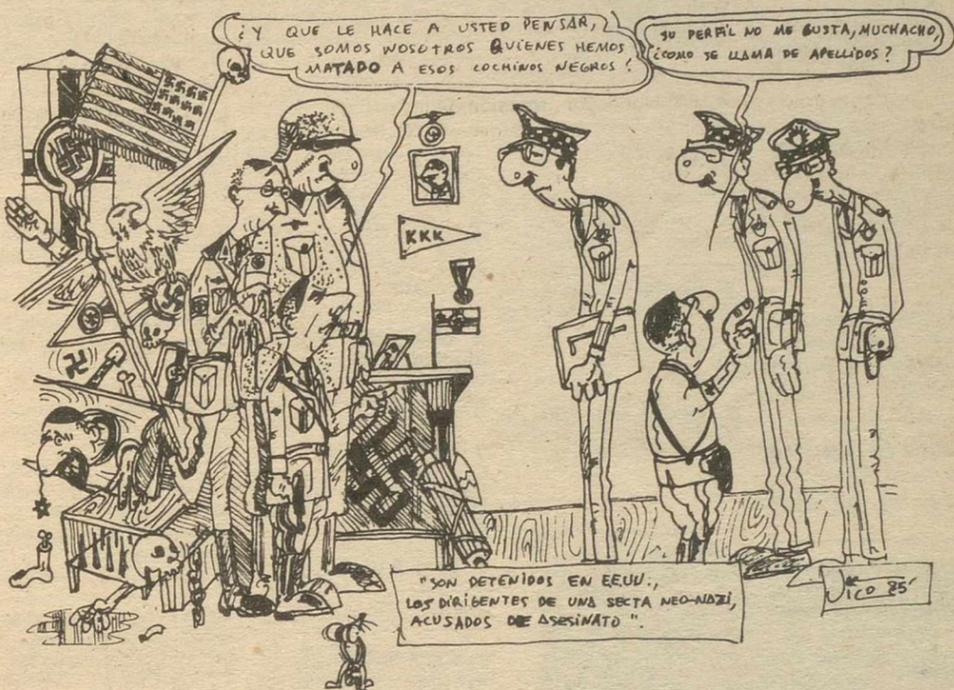 ¿Y QUE LE HACE A USTED PENSAR,
QUE SOMOS NOSOTROS QUIENES HEMOS
MATADO A ESOS COCHINOS NEGROS!
SU PERFIL NO ME GUSTA, MUCHACHO,
¿COMO SE LLAMA DE APELLIDOS?
KKK
"SON DETENIDOS EN EE.UU.,
LOS DIRIGENTES DE UNA SECTA NEO-NAZI,
ACUSADOS DE ASESINATO".
VICO 85'